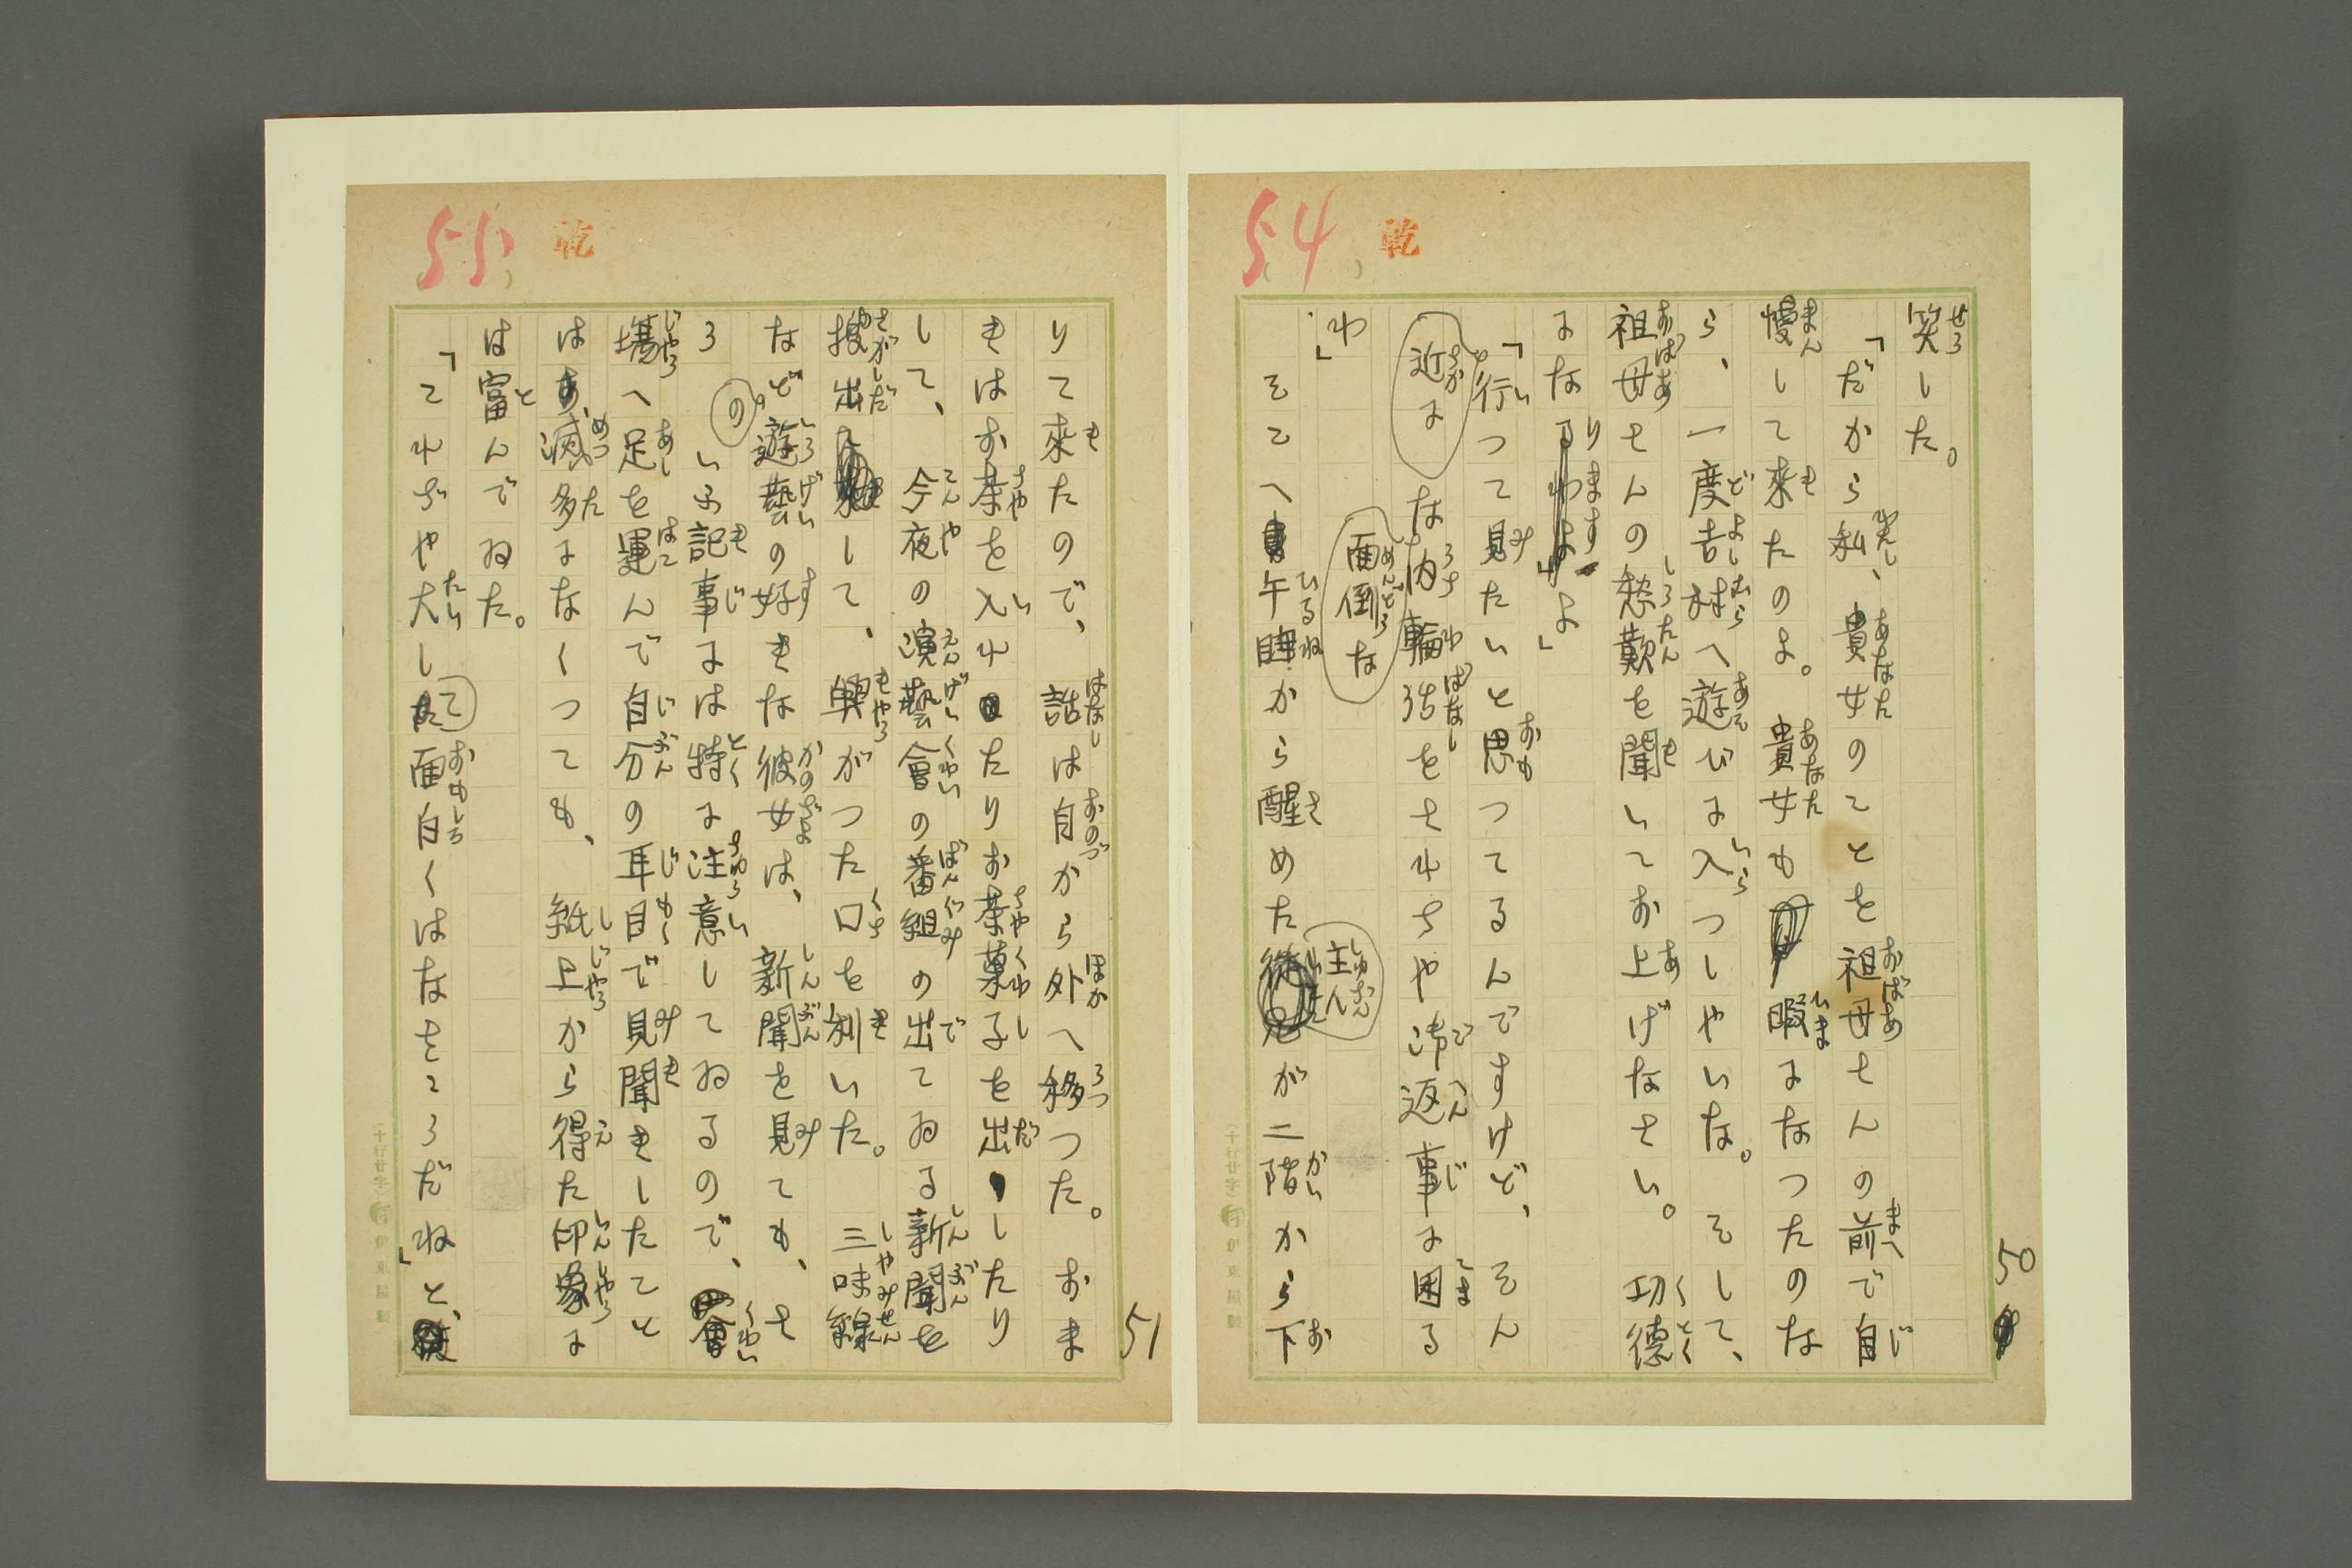 54
乾
50
笑した。
「だから私、貴女のことを祖母さんの前で自
慢して来たのよ。貴女も暇になつたのな
ら、一度吉村へ遊びに入つしやいな。そして、
祖母さんの愁歎を聞いてお上げなさい。功徳
になりますよ」
「行つて見たいと思つてるんですけど、そん
な内輪話をされちや返事に困る
近に
面倒な
わ」
そこへ午睡から醒めた主人が二階から下
55
乾
51
りて来たので、話は自から外へ移つた。おま
きはお茶を入れたりお茶菓子を出したり
して、今夜の演藝會の番組の出てゐる新聞を
捜出して、興がつた口を利いた。三味線
など遊藝の好きな彼女は、新聞を見ても、さ
うの
いふ記事には特に注意してゐるので、會
場へ足を運んで自分の耳目で見聞きしたこと
はあ滅多になくつても、紙上から得た印象に
は富んでゐた。
「これぢや大して面白くはなさころだね」と、
十行廿字